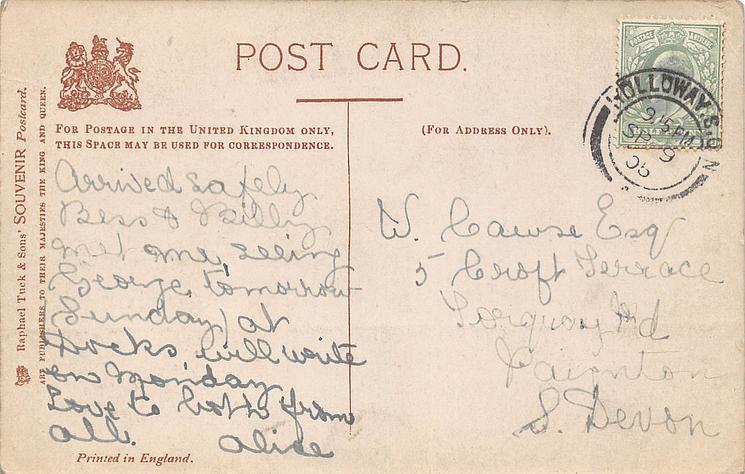 POST CARD.
FOR POSTAGE IN THE UNITED KINGDOM ONLY,
THIS SPACE MAY BE USED FOR CORRESPONDENCE.
(FOR ADDRESS ONLY).
Raphael Tuck & Sons' SOUVENIR Postcard.
ART PUBLISHERS TO THEIR MAJESTIES THE KING AND QUEEN.
HOLLOWAY S.O. N
9.15 PM
SP 9
POSTAGE
Arrived safely
Bess & Billy
met me, seeing
George tomorrow
Sunday) at
Docks will write
on Monday
Love to both from
all. Alice
W. Cawse Esq
5 Croft Terrace
Torquay Rd
Paignton
S. Devon
Printed in England.